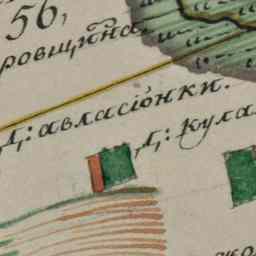 56,
ровщина
Д: авласіонки.
Д: кула